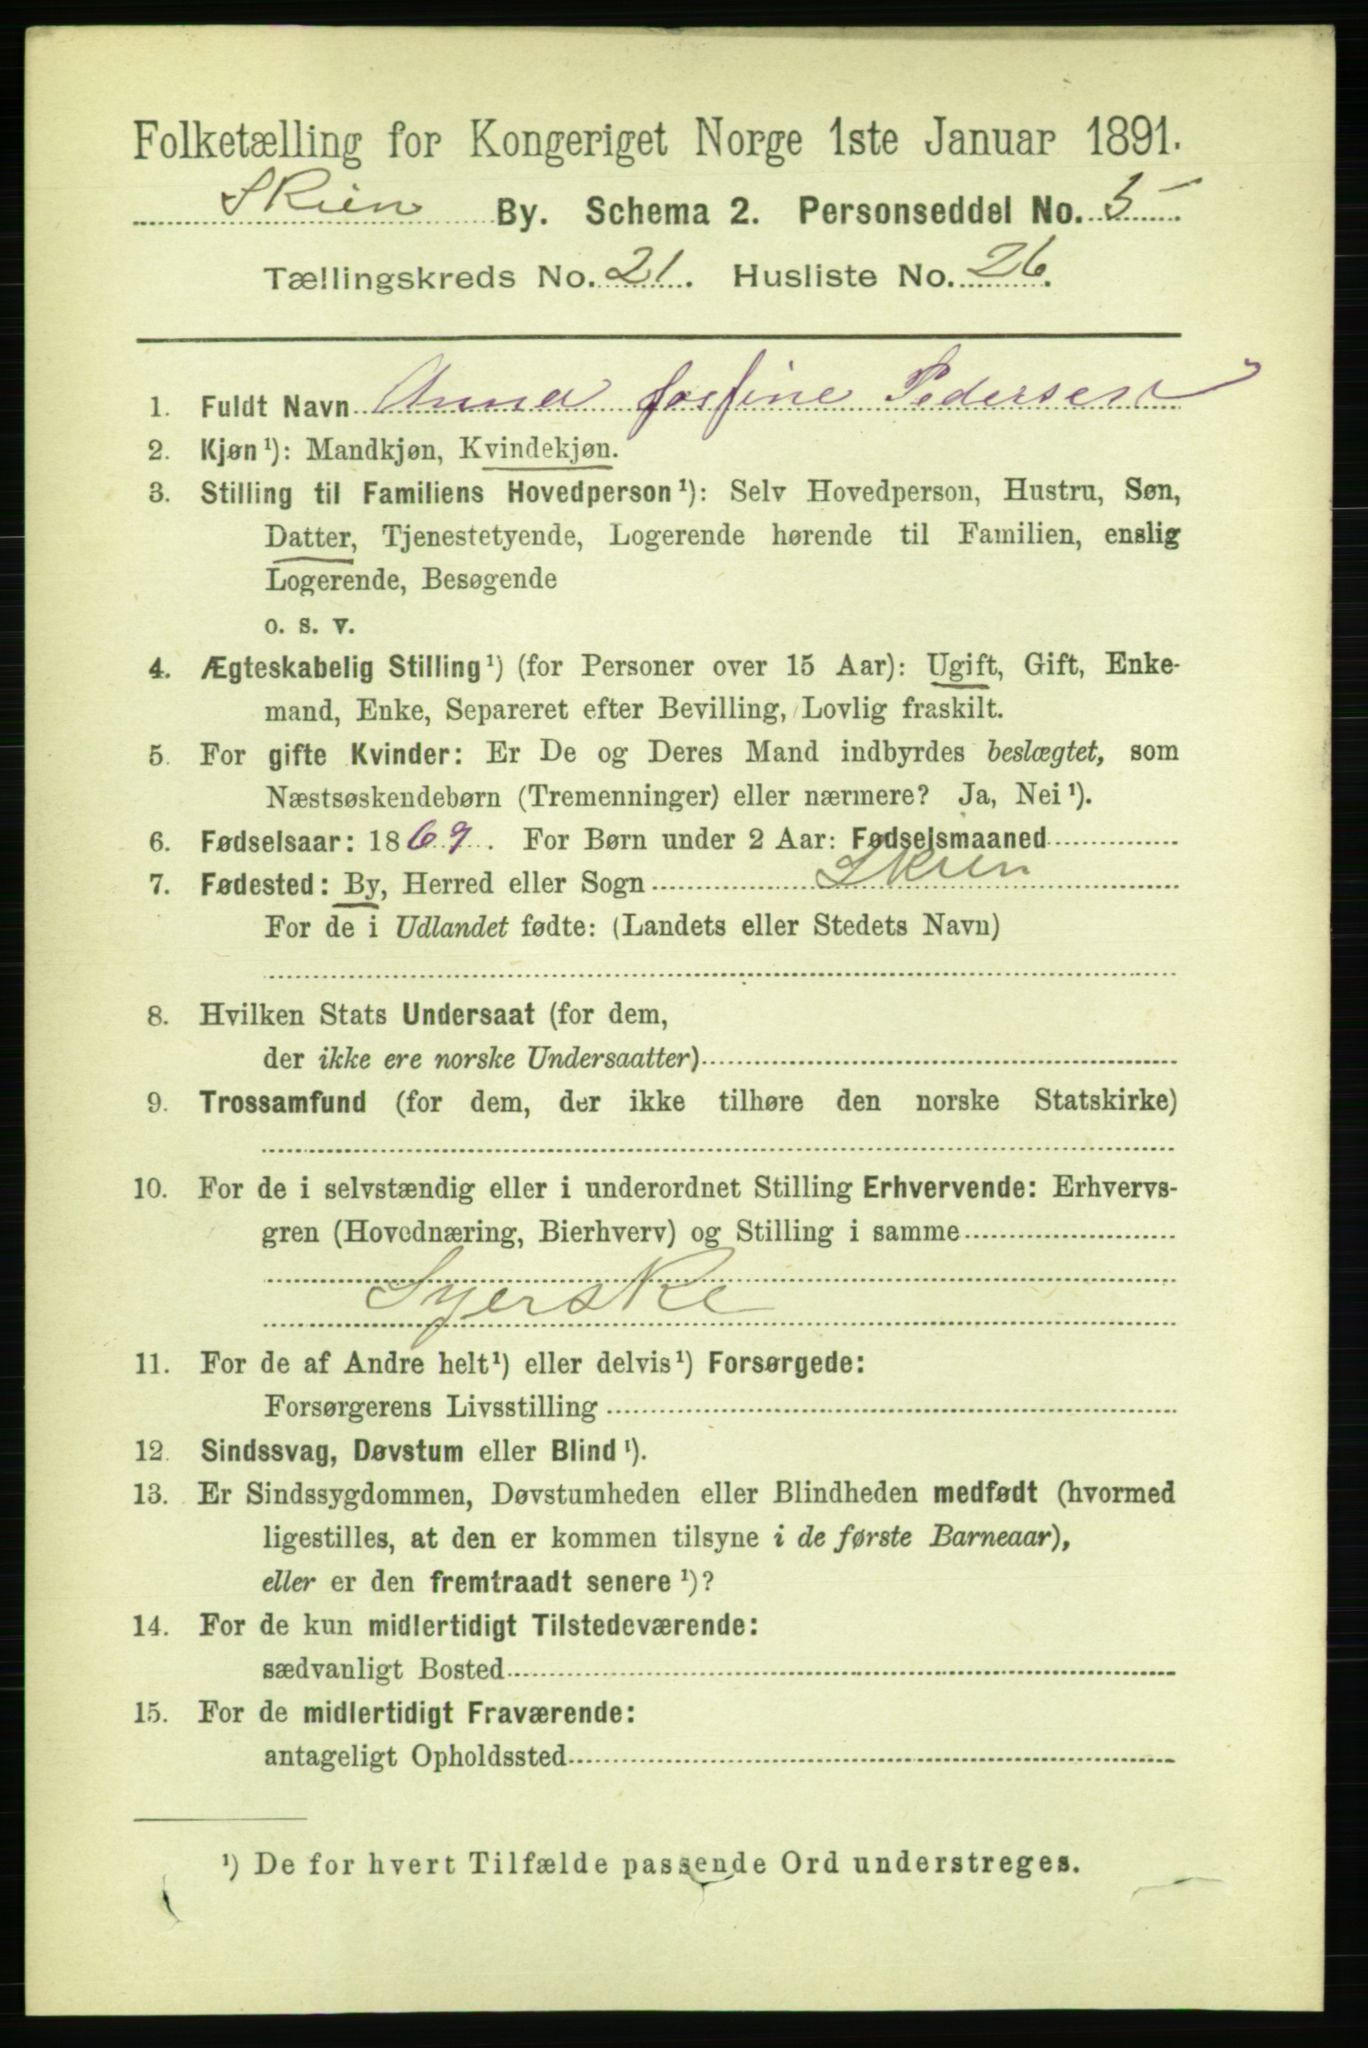 Folketælling for Kongeriget Norge 1ste Januar 1891.
Skien By. Schema 2. Personseddel No. 5
Tællingskreds No. 21. Husliste No. 26.
1. Fuldt Navn Anna Josfine Pedersen
2. Kjøn¹): Mandkjøn, Kvindekjøn.
3. Stilling til Familiens Hovedperson¹): Selv Hovedperson, Hustru, Søn,
Datter, Tjenestetyende, Logerende hørende til Familien, enslig
Logerende, Besøgende
o. s. v.
4. Ægteskabelig Stilling¹) (for Personer over 15 Aar): Ugift, Gift, Enke-
mand, Enke, Separeret efter Bevilling, Lovlig fraskilt.
5. For gifte Kvinder: Er De og Deres Mand indbyrdes beslægtet, som
Næstsøskendebørn (Tremenninger) eller nærmere? Ja, Nei¹).
6. Fødselsaar: 1869. For Børn under 2 Aar: Fødselsmaaned
7. Fødested: By, Herred eller Sogn Skien
For de i Udlandet fødte: (Landets eller Stedets Navn)
8. Hvilken Stats Undersaat (for dem,
der ikke ere norske Undersaatter)
9. Trossamfund (for dem, der ikke tilhøre den norske Statskirke)
10. For de i selvstændig eller i underordnet Stilling Erhvervende: Erhvervs-
gren (Hovednæring, Bierhverv) og Stilling i samme
Syerske
11. For de af Andre helt¹) eller delvis¹) Forsørgede:
Forsørgerens Livsstilling
12. Sindssvag, Døvstum eller Blind¹).
13. Er Sindssygdommen, Døvstumheden eller Blindheden medfødt (hvormed
ligestilles, at den er kommen tilsyne i de første Barneaar),
eller er den fremtraadt senere¹)?
14. For de kun midlertidigt Tilstedeværende:
sædvanligt Bosted
15. For de midlertidigt Fraværende:
antageligt Opholdssted
¹) De for hvert Tilfælde passende Ord understreges.